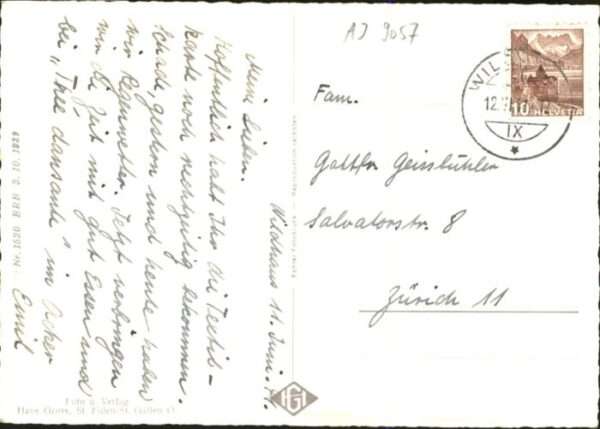 AJ 9057
WIL
12.
IX
10 HELVETIA
Fam.
Gottfr. Geissbühler
Salvatorstr. 8
Zürich 11
Wildhaus 11. Juni 41.
Mein Lieben.
Hoffentlich habt Ihr die Textil-
karte noch rechtzeitig bekommen.
Schade, gestern und heute haben
wir Regenwetter. Jetzt verbringen
wir die Zeit mit gut Essen und
bei "Thee dansants" im Acker
Emil
HGI
Foto u. Verlag
Hans Gross, St. Fiden-St. Gallen O
No. 1630 BRB 3. 10. 1939